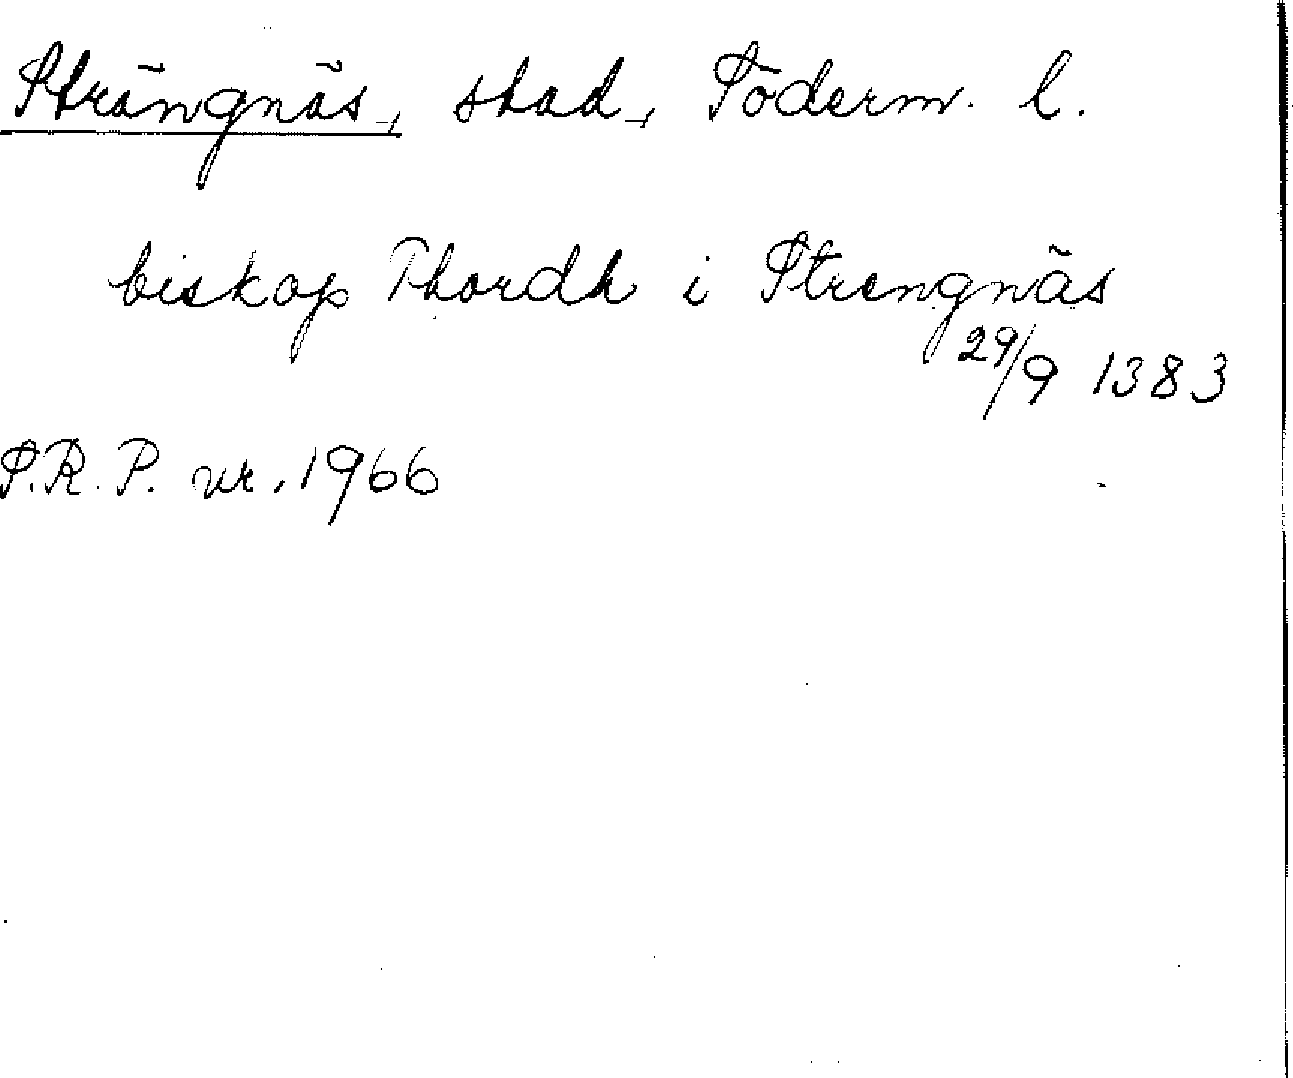 Strängnäs, stad, Söderm. l.
biskop Thordh i Strengnäs
29/9 1383
S.R.P. nr. 1966